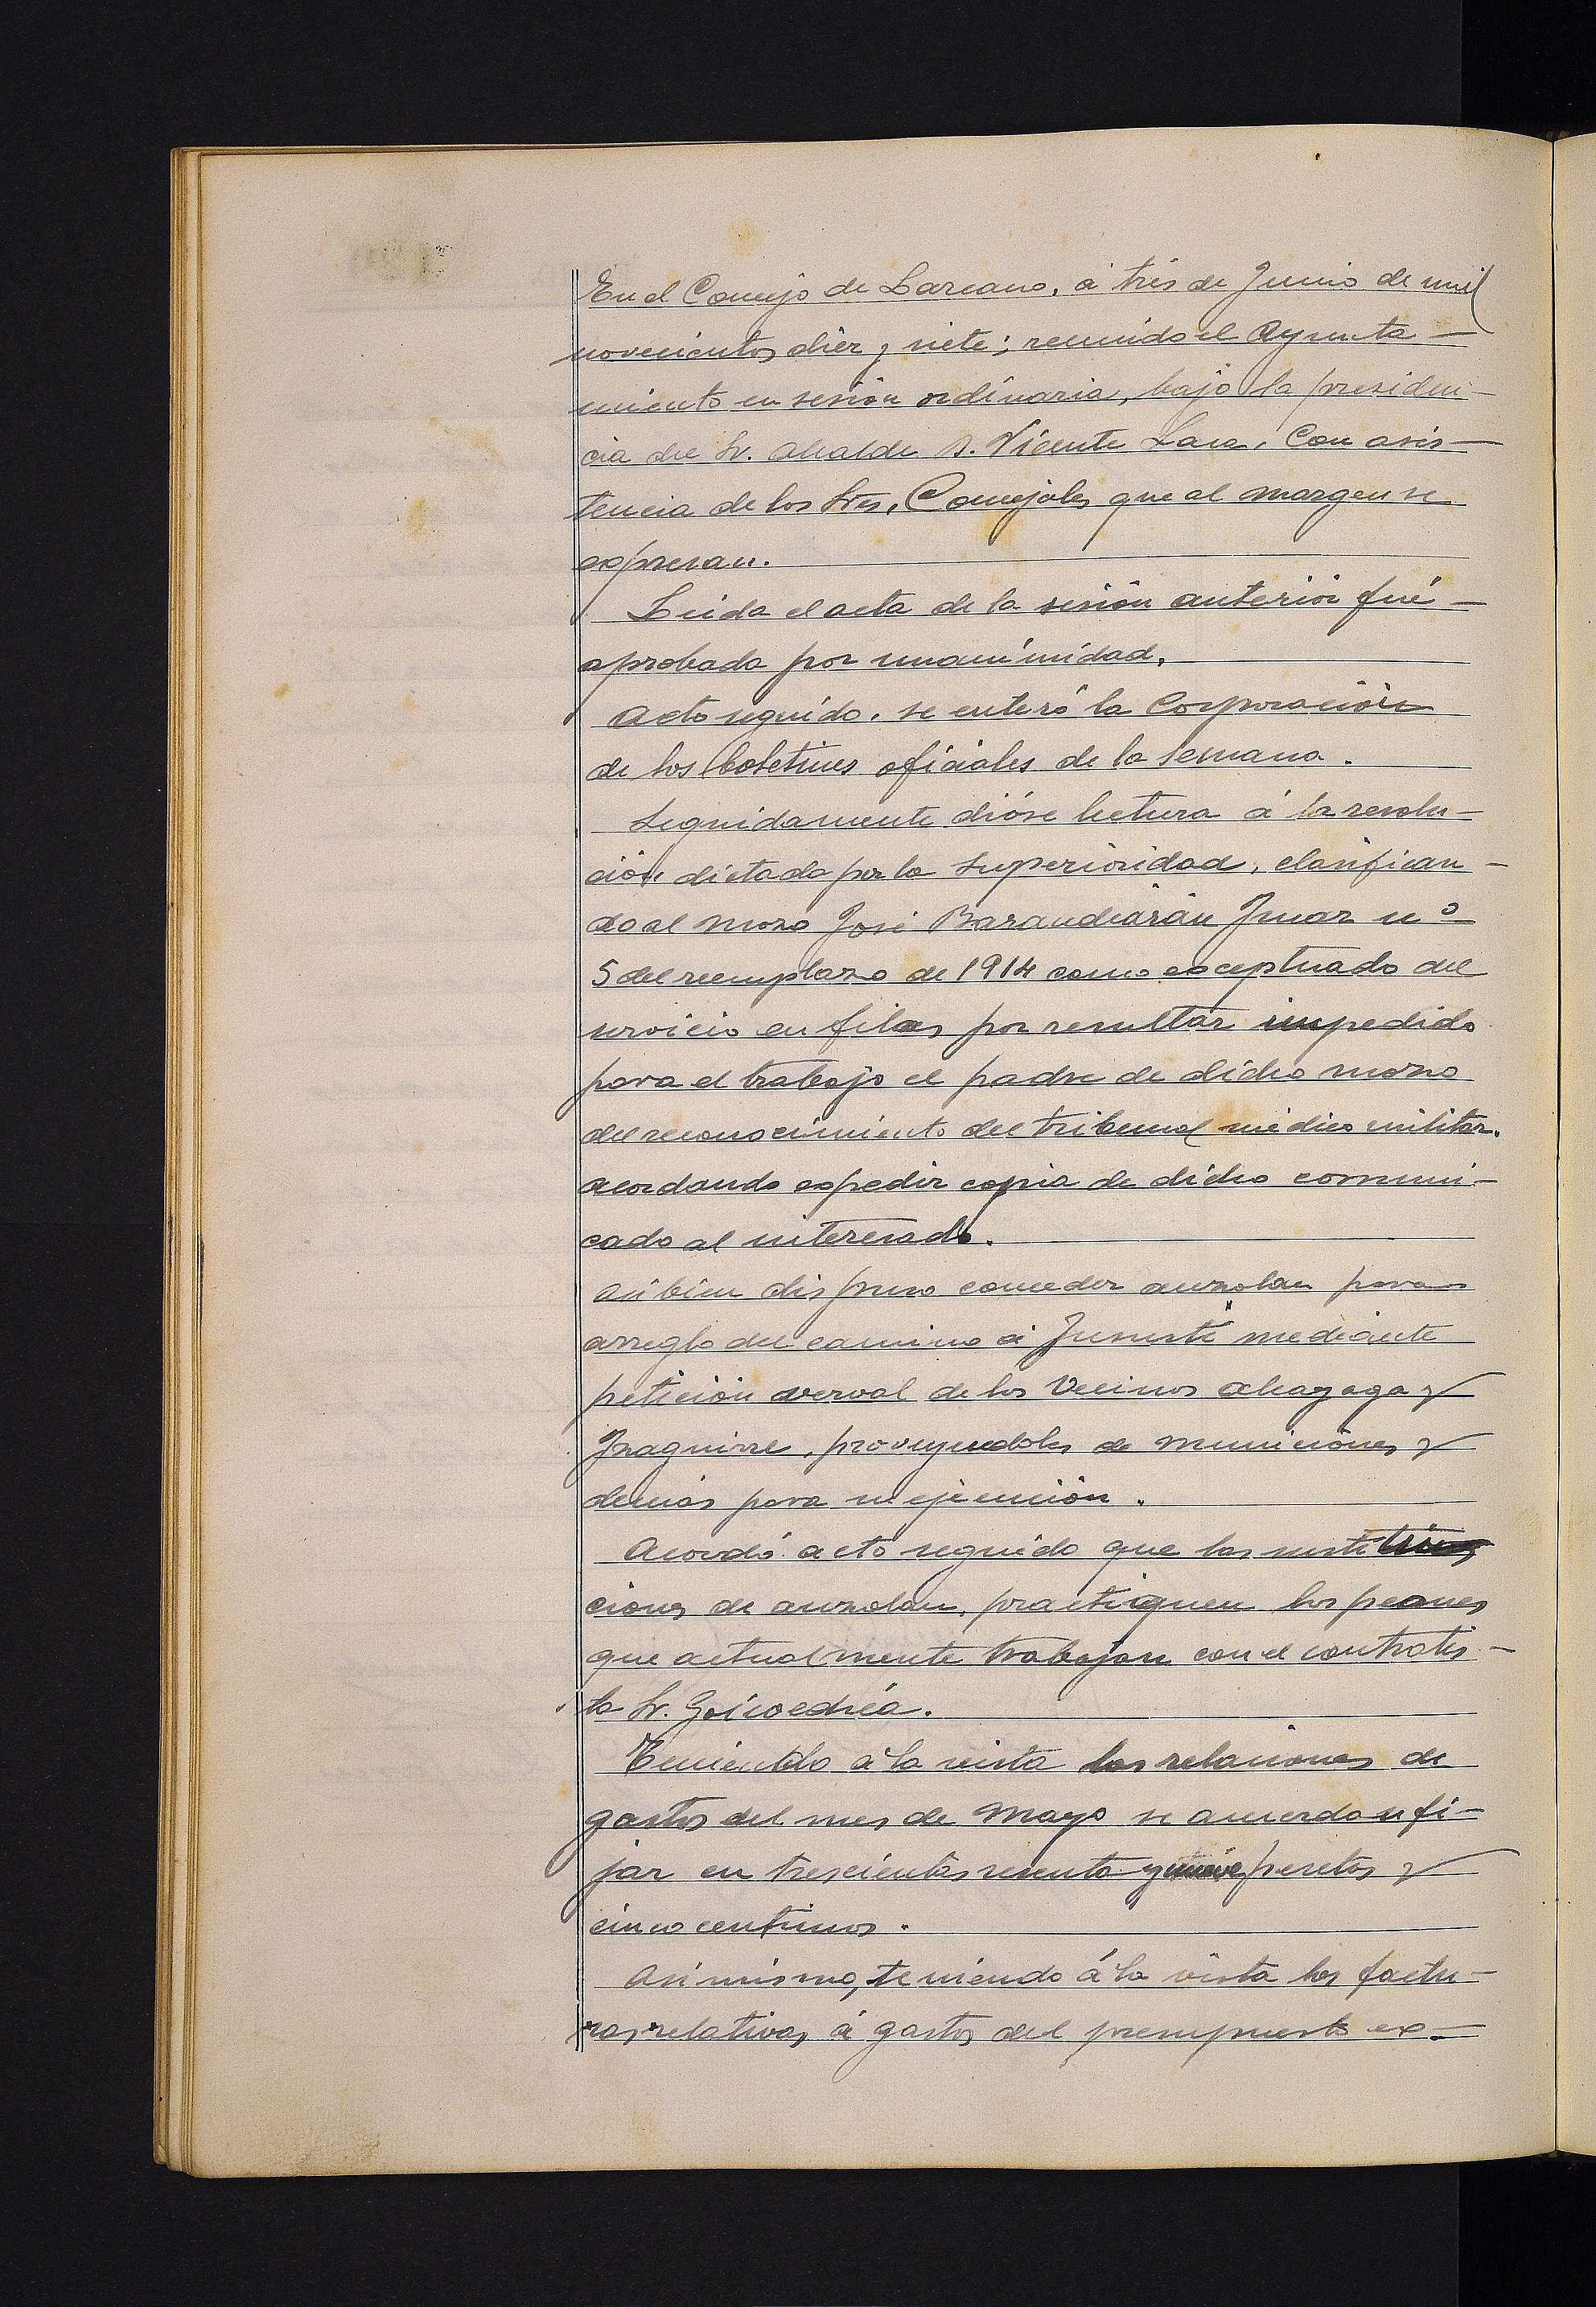 En el Concejo de Lazcano, á trés de Junio de mil
novecientos diez y siete; reunido el Ayunta-
miento en sesión ordinaria, bajo la presiden-
cia del Sr. Alcalde D. Vicente Lasa, Con asis-
tencia de los Srs, Concejales que al margen se
expresan.
Leida el acta de la sesión anterior fué
aprobada por unanimidad.
Acto seguido, se enteró la Corporación
de los boletines oficiales de la semana.
Seguidamente dióse lectura á la resolu-
ción dictada por la Superioridad, clasifican-
do al mozo José Barandiarán nº
5 del reemplazo de 1914 como exceptuado del
servicio en filas por resultar impedido
para el trabajo el padre de dicho mozo
del reconocimiento del tribunal médico militar.
acordando expedir copia de dicho comuni-
cado al interesado.
Así bien dispuso conceder auzolan para
arreglo del camino á mediante
petición verval de los Vecinos y
Izaguirre, proveyendoles de municiones y
demás para su ejecución.
Acordó acto seguido que las sustitu
ciones de auzolan, practiquen los peones
que actualmente trabajan con el contratis-
ta Sr. Goicoechéa.
Teniendo á la vista las relaciones de
gastos del mes de Mayo se acuerda fi-
jar en trescientas sesenta y nueve pesetas y
cinco centimos.
Asi mismo, teniendo á la vista las factu-
ras relativas á gastos del presupuesto ex-